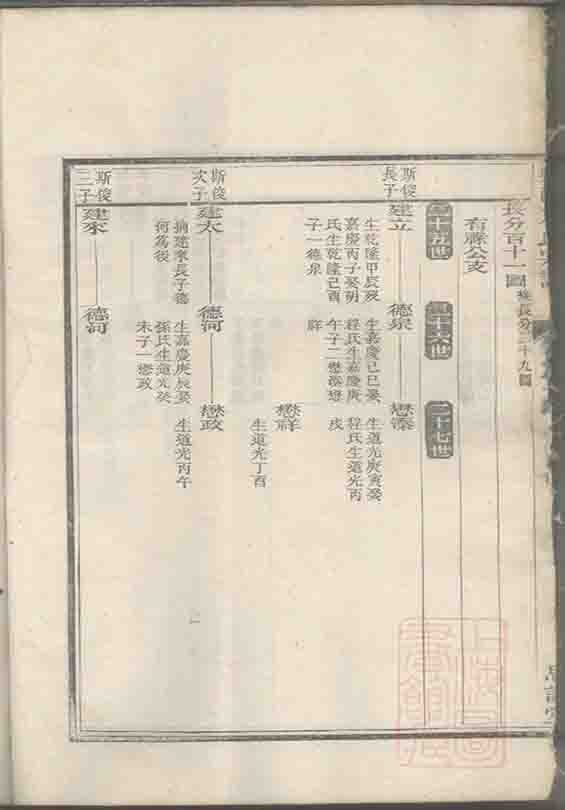 長分百十一圖接長分二十九圖
右縣公支
三十五世
三十六世
三十七世
斯俊
長子
建立
生乾隆甲辰歿
嘉慶丙子娶胡
氏生乾隆己酉
子一德泉
德泉
生嘉慶己巳娶
程氏生嘉慶庚
午子二懋
祥
生道光庚寅娶
程氏生道光丙
戌
懋祥
生道光丁酉
斯俊
次子
建大
繼建來長子德
河為後
德河
生嘉慶庚辰娶
孫氏生道光癸
未子一懋政
懋政
生道光丙午
斯俊
三子
建來
德河